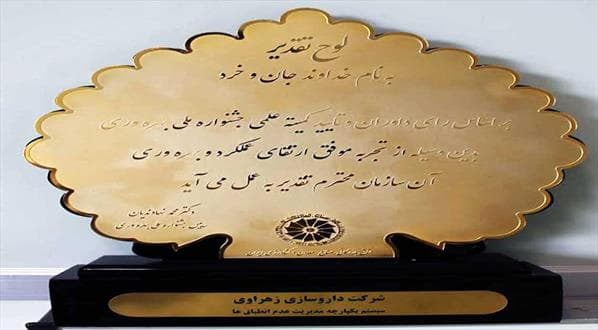 لوح تقدیر
به نام خداوند جان و خرد
بر اساس رای داوران و تایید کمیته علمی جشنواره ملی بهره وری
بدین وسیله از تجربه موفق ارتقای عملکرد و بهره وری
آن سازمان محترم تقدیر به عمل می آید
دکتر محمد نهاوندیان
رییس جشنواره ملی بهره وری
شرکت داروسازی زهراوی
سیستم یکپارچه مدیریت عدم انطباق ها